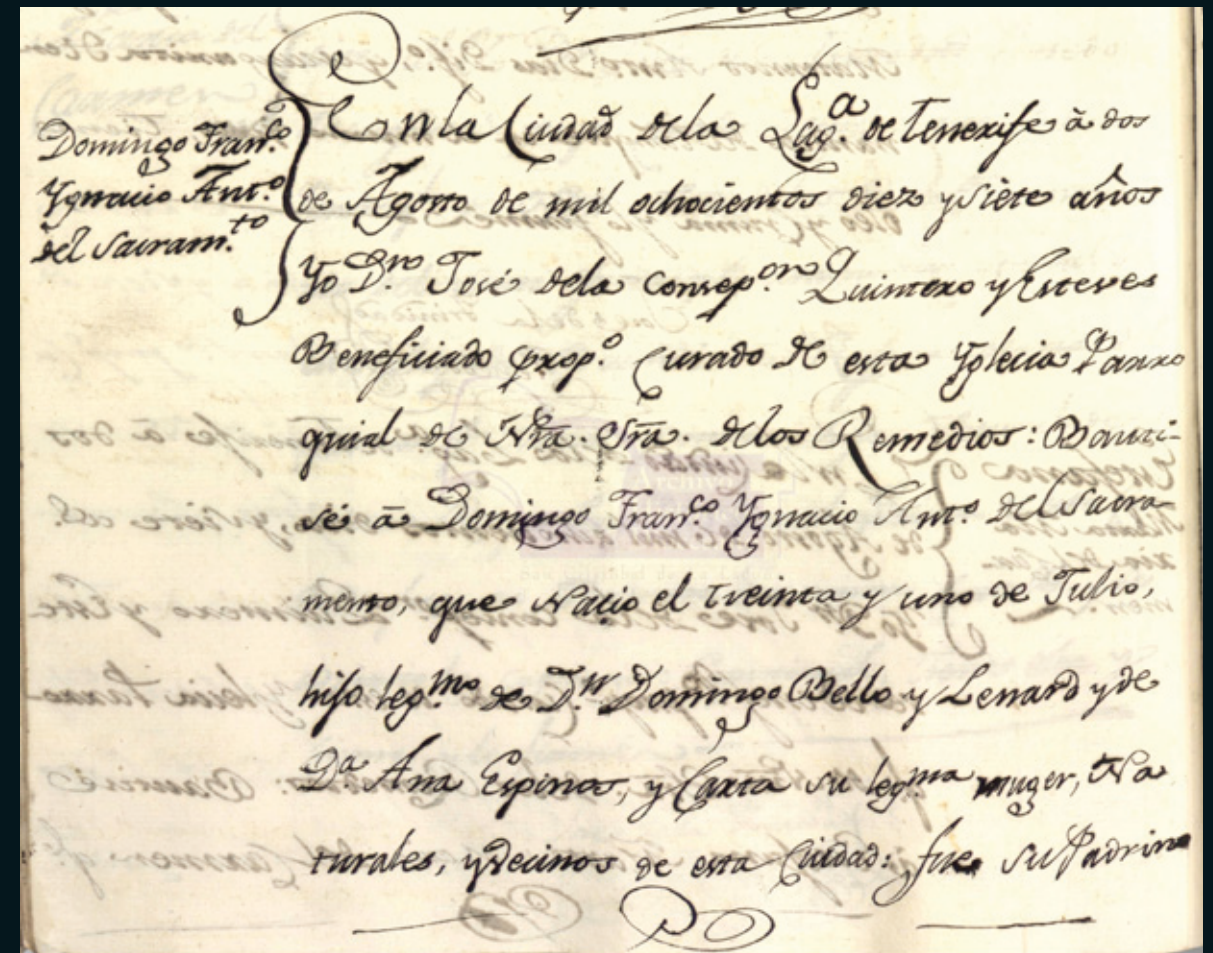 Domingo Fran.co
Ygnacio Ant.o
del Sacram.to
En la Ciudad de la Lag.a de Tenerife à dos
de Agosto de mil ochocientos diez y siete años
Yo D.n José de la Consep.on Quintero y Esteves
Beneficiado prop.o Curado de esta Yglecia Parro
quial de Nra. Sra. de los Remedios: Bauti-
sé à Domingo Fran.co Ygnacio Ant.o del Sacra
mento, que Nacio el treinta y uno de Julio,
hijo leg.mo de D.n Domingo Bello y Lenard y de
D.a Ana Espinosa, y Carta su leg.ma muger, Na
turales, y Vecinos de esta Ciudad: fue su Padrino
Archivo